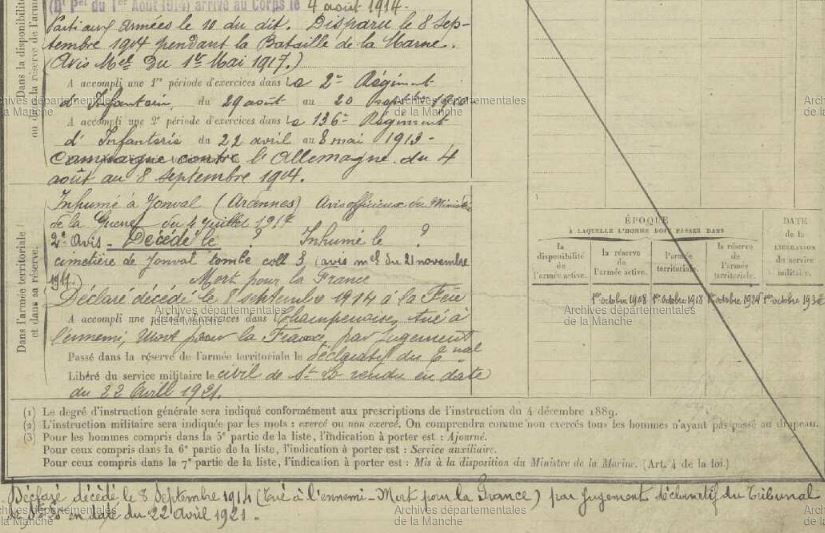 (Dt Pel du 1er Août 1914) arrivé au Corps le 4 août 1914.
Parti aux armées le 10 du dit. Disparu le 8 Sep-
tembre 1914 pendant la Bataille de la Marne.
(Avis Mel Du 1er Mai 1917.)
A accompli une 1re période d'exercices dans le 2e Régiment
d'Infanterie, du 29 août au 20 septembre 1910
A accompli une 2e période d'exercices dans le 136e Régiment
d'Infanterie du 22 avril au 8 mai 1913 -
Campagne contre l'Allemagne. du 4
août au 8 septembre 1914.
Dans la disponibilité
ou dans la réserve de l'armée
Inhumé à Jonval (Ardennes) Avis officieux du Ministère
de la Guerre du 4 juillet 1917
2e Avis - Décédé le ? Inhumé le ?
cimetière de Jonval tombe coll 3 (avis mel du 21 novembre
Mort pour la France
Déclaré décédé le 8 septembre 1914 à la Fère
A accompli une période d'exercices dans Champenoise, tué à
l'ennemi, Mort pour la France, par jugement
Passé dans la réserve de l'armée territoriale le déclaratif du Tnal
Libéré du service militaire le civil de St Lô rendu en date
du 22 Avril 1921.
Dans l'armée territoriale
et dans sa réserve.
ÉPOQUE
À LAQUELLE L'HOMME DOIT PASSER DANS
la disponibilité de l'armée active.
la réserve de l'armée active.
l'armée territoriale.
la réserve de l'armée territoriale.
DATE de la LIBÉRATION du service militaire.
1er octobre 1918
(1) Le degré d'instruction générale sera indiqué conformément aux prescriptions de l'instruction du 4 décembre 1889.
(2) L'instruction militaire sera indiquée par les mots : exercé ou non exercé. On comprendra comme non exercés tous les hommes n'ayant pas passé au drapeau.
(3) Pour les hommes compris dans la 5e partie de la liste, l'indication à porter est : Ajourné.
Pour ceux compris dans la 6e partie de la liste, l'indication à porter est : Service auxiliaire.
Pour ceux compris dans la 7e partie de la liste, l'indication à porter est : Mis à la disposition du Ministre de la Marine. (Art. 4 de la loi.)
Déclaré décédé le 8 Septembre 1914 (Tué à l'ennemi - Mort pour la France) par jugement déclaratif du Tribunal
de St Lô en date du 22 Avril 1921.
Archives départementales
de la Manche